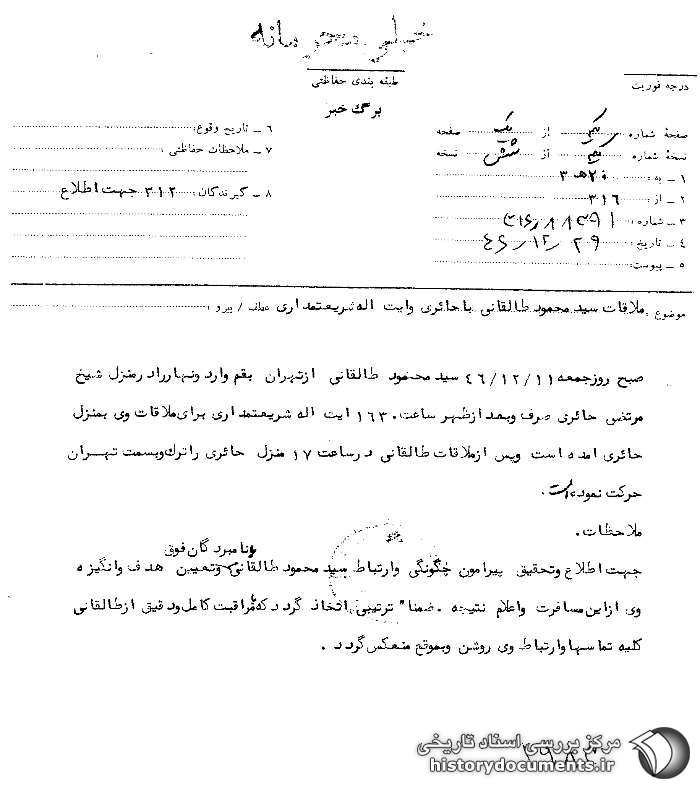 خیلی محرمانه
طبقه بندی حفاظتی
درجه فوریت
برگ خبر
صفحهٔ شماره یک از یک صفحه
نسخهٔ شماره یکم از شش نسخه
۱ - به: ۲۰ هـ ۳
۲ - از: ۳۱۶
۳ - شماره: ۳۱۶/۸۸۳۹۱
۴ - تاریخ: ۴۶/۱۲/۲۹
۵ - پیوست:
۶ - تاریخ وقوع:
۷ - ملاحظات حفاظتی:
۸ - گیرندگان: ۳۱۲ جهت اطلاع
موضوع: ملاقات سید محمود طالقانی با حائری وایت اله شریعتمداری عطف / پیرو:
صبح روزجمعه ۴۶/۱۲/۱۱ سید محمود طالقانی ازتهران بقم وارد ونهارراد رمنزل شیخ
مرتضی حائری صرف وبعد ازظهر ساعت ۱۶۳۰ ایت اله شریعتمداری برای ملاقات وی بمنزل
حائری امده است وپس ازملاقات طالقانی درساعت ۱۷ منزل حائری راترک وبسمت تهران
حرکت نموده است.
ملاحظات.
بانامبردگان فوق
جهت اطلاع وتحقیق پیرامون چگونگی وارتباط سید محمود طالقانی وتعیین هدف وانگیزه
وی ازاین مسافرت واعلام نتیجه ـ ضمنا" ترتیبی اتخاذ گردد که مراقبت کامل ودقیق ازطالقانی
کلیه تماسهاوارتباط وی روشن وبموقع منعکس گردد.
مرکز بررسی اسناد تاریخی
historydocuments.ir